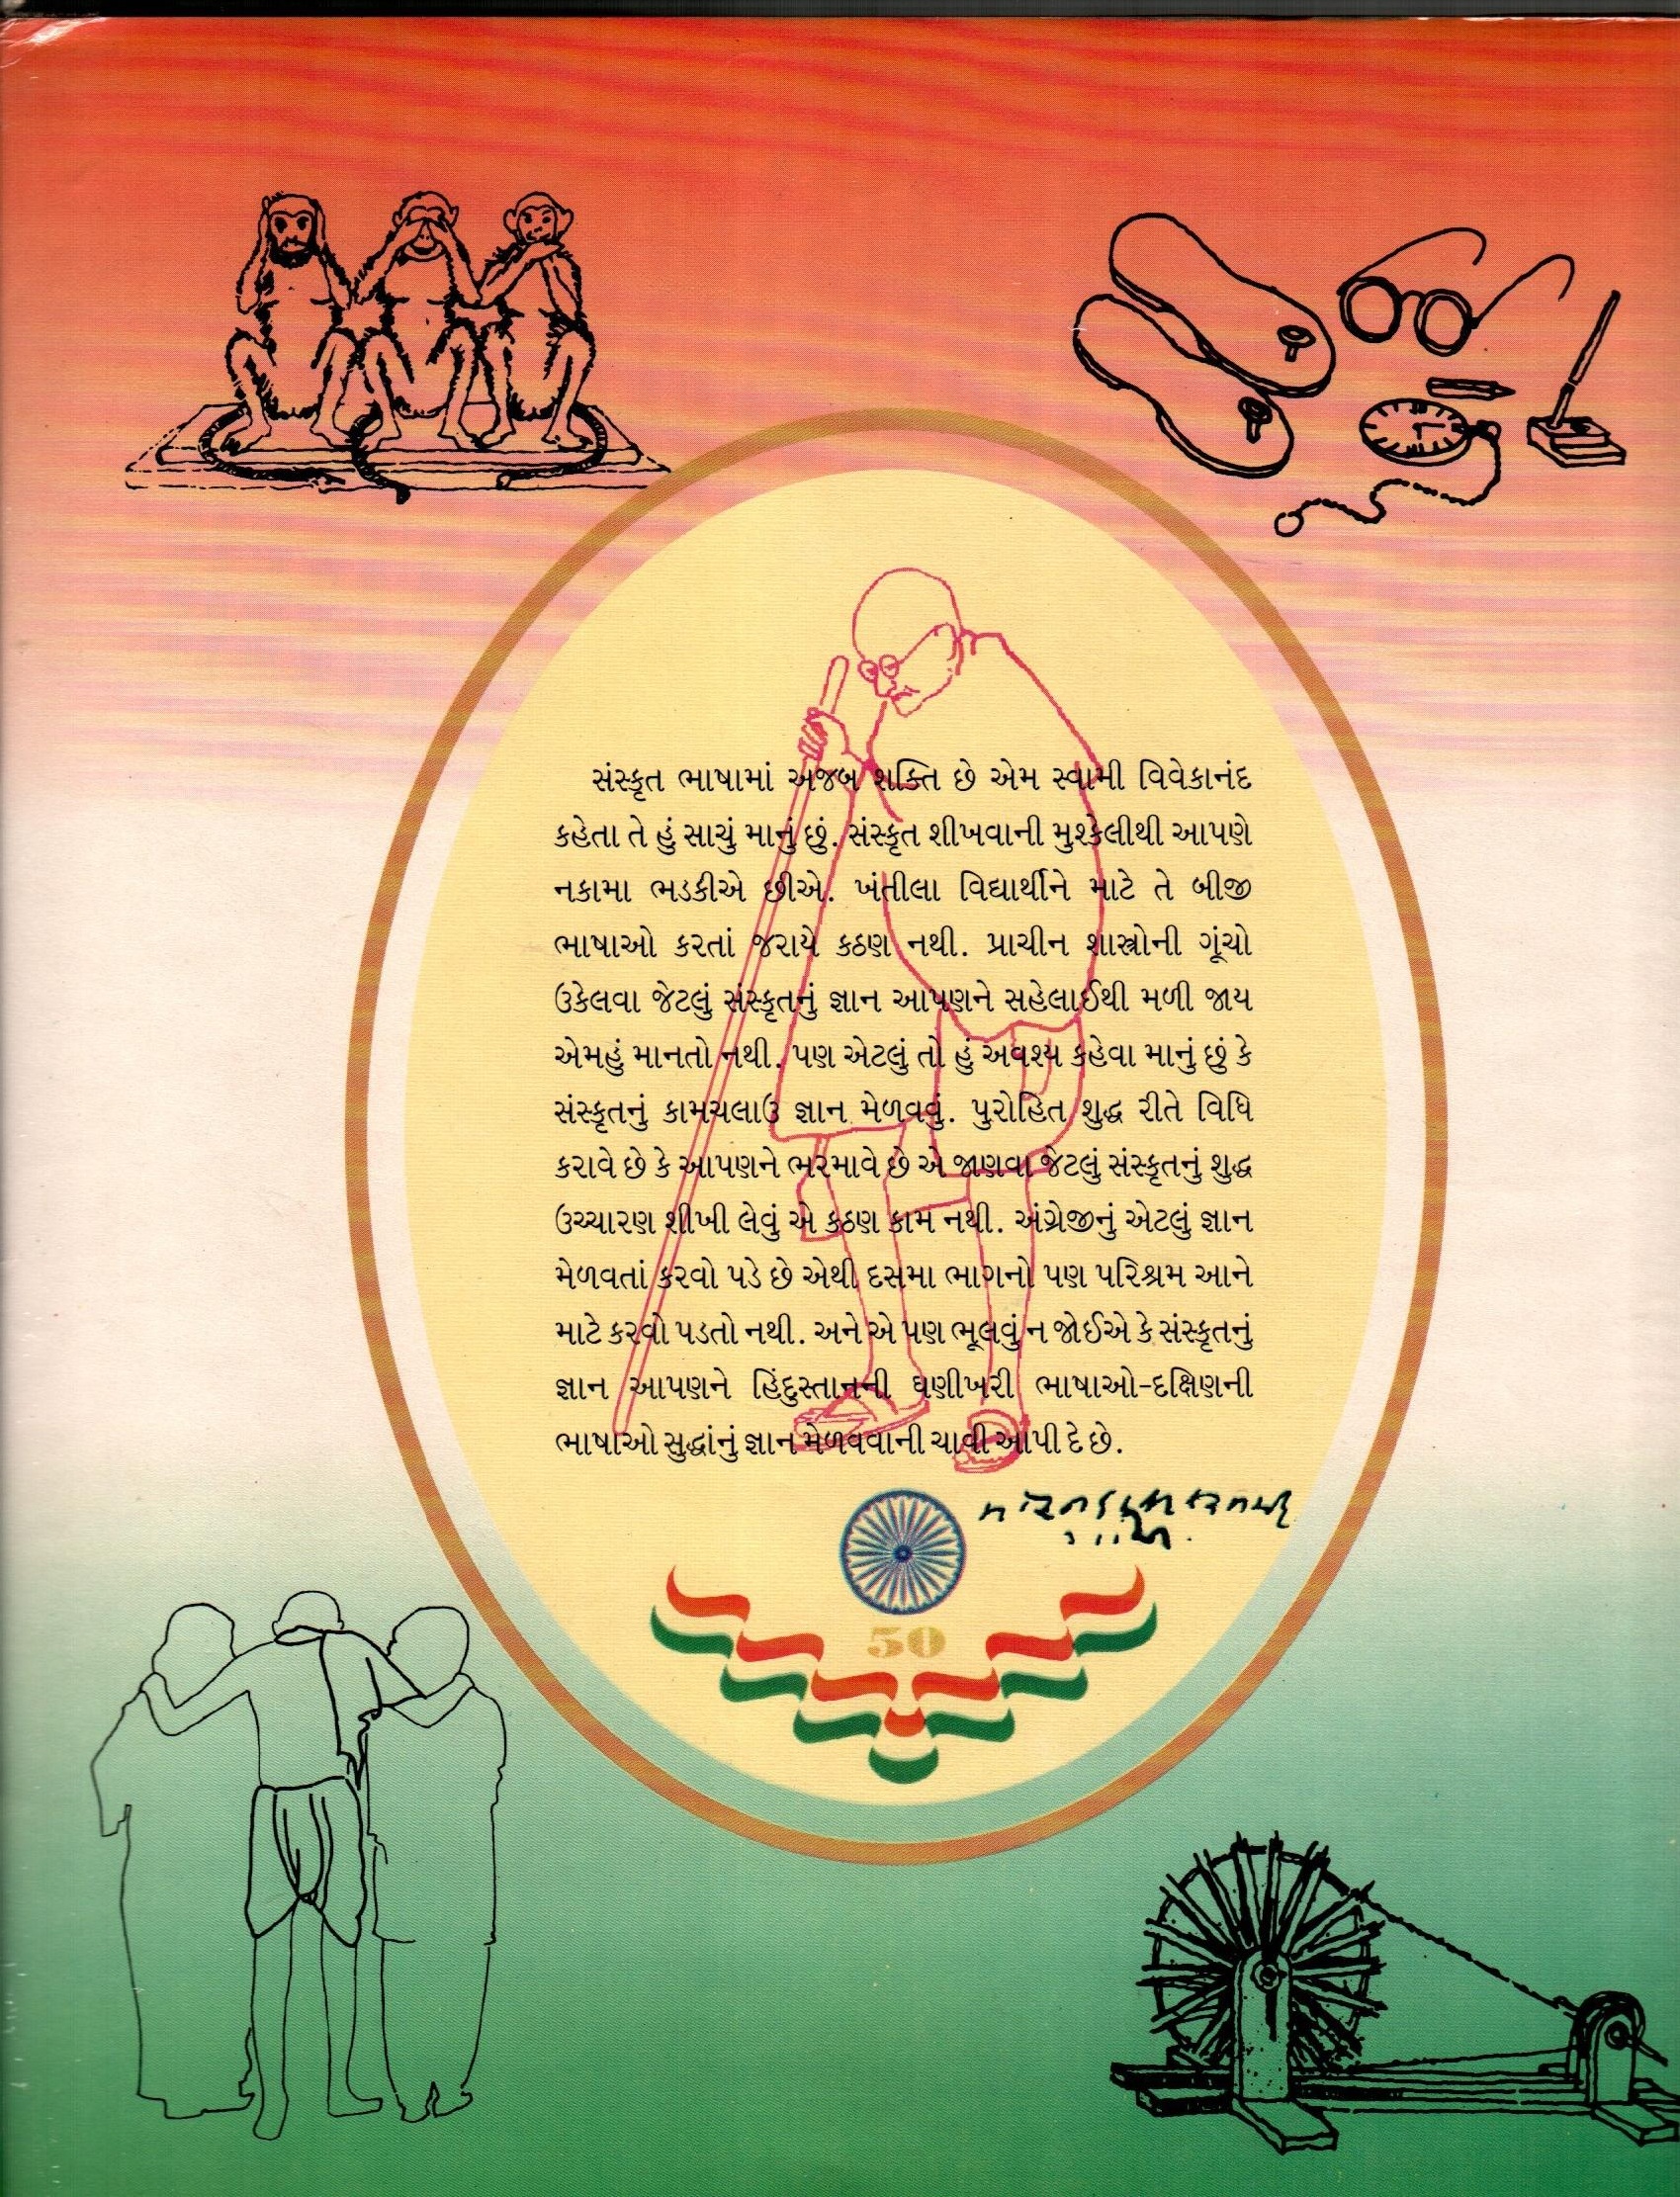 સંસ્કૃત ભાષામાં અજબ શક્તિ છે એમ સ્વામી વિવેકાનંદ
કહેતા તે હું સાચું માનું છું. સંસ્કૃત શીખવાની મુશ્કેલીથી આપણે
નકામા ભડકીએ છીએ. ખંતીલા વિદ્યાર્થીને માટે તે બીજી
ભાષાઓ કરતાં જરાયે કઠણ નથી. પ્રાચીન શાસ્ત્રોની ગૂંચો
ઉકેલવા જેટલું સંસ્કૃતનું જ્ઞાન આપણને સહેલાઈથી મળી જાય
એમહું માનતો નથી. પણ એટલું તો હું અવશ્ય કહેવા માનું છું કે
સંસ્કૃતનું કામચલાઉ જ્ઞાન મેળવવું. પુરોહિત શુદ્ધ રીતે વિધિ
કરાવે છે કે આપણને ભરમાવે છે એ જાણવા જેટલું સંસ્કૃતનું શુદ્ધ
ઉચ્ચારણ શીખી લેવું એ કઠણ કામ નથી. અંગ્રેજીનું એટલું જ્ઞાન
મેળવતાં કરવો પડે છે એથી દસમા ભાગનો પણ પરિશ્રમ આને
માટે કરવો પડતો નથી. અને એ પણ ભૂલવું ન જોઈએ કે સંસ્કૃતનું
જ્ઞાન આપણને હિંદુસ્તાનની ઘણીખરી ભાષાઓ-દક્ષિણની
ભાષાઓ સુદ્ધાંનું જ્ઞાન મેળવવાની ચાવી આપી દે છે.
50